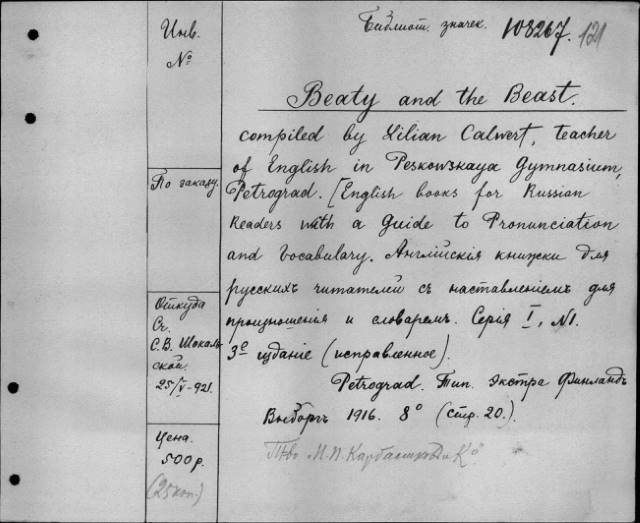 Инв.
№
Библиот. значек. 108267. 121
Beaty and the Beast.
compiled by Lilian Calwert, teacher
of English in Peskowskaya Gymnasium,
Petrograd. [English books for Russian
Readers with a Guide to Pronunciation
and Vocabulary. Англійскія книжки для
русскихъ читателей съ наставленіемъ для
произношенія и словаремъ. Серія I, N1.
3е изданіе (исправленное).
Petrograd. Тип. экстра Финландъ
Выборгъ 1916. 8° (стр. 20.).
Т-во М.П. &Кº
По заказу.
Откуда
Сч.
С.В. Шокаль
ской.
25/V-921.
Цена.
500 р.
(25 коп.)